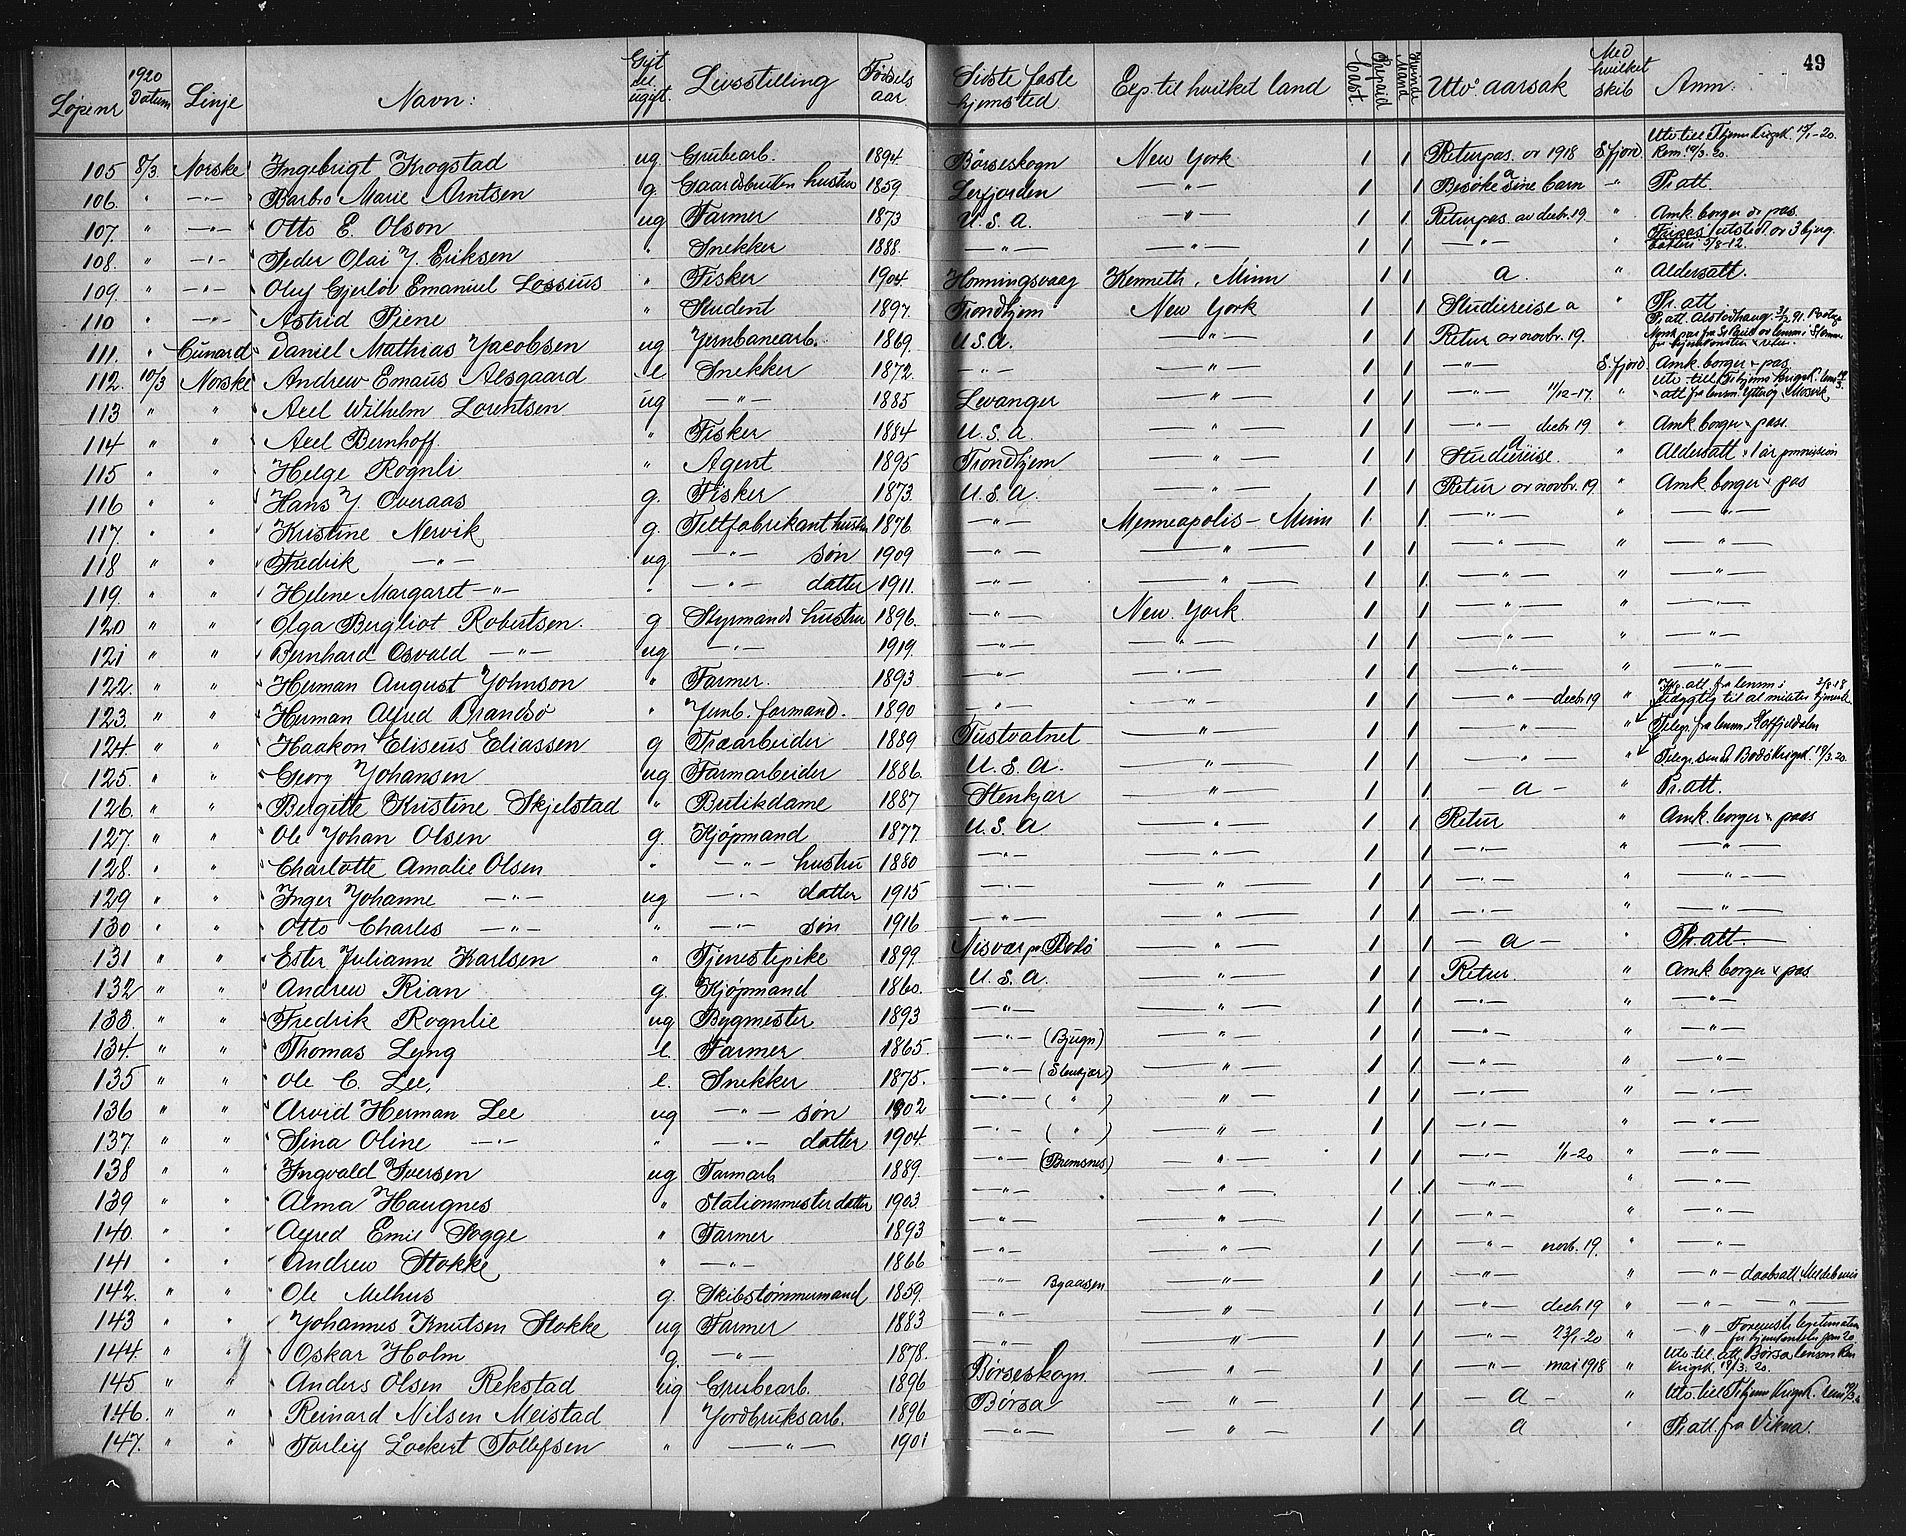 49
Løpenr 1920 Datum Linje Navn: Gift el. ugift. Livsstilling Fødsels aar Sidste faste hjemsted Exp. til hvilket land Cont. Prepaid Mand Kvinde Utv aarsak Med hvilket skib Anm.
105 8/3 Norske Ingebrigt Krogstad ug Grubearb. 1894 Børseskogn New York 1 1 Returpas. av 1918 S. fjord Utv. till Thjems Krigsk. Rem. 19/3. 20.
106. " —"— Barbro Marie Arntsen g. Gaardbruker hustru 1859 Lexfjorden —"— 1 1 Besøke sine barn —"— Pr. att.
107. " —"— Otto E. Olson ug Farmer 1873 U.S.A. —"— 1 1 Returpas. av decbr. 19 " Amk. borger & pas.
108. " —"— Peder Olai J. Eriksen " Snekker 1888. —"— —"— 1 1 —"— "
109. " —"— Oluf Gjerløv Emanuel Lossius " Fisker 1904 Honningsvaag Kenneth, Minn 1 1 a " Aldersatt.
110 " —"— Astrid Piene " Student 1897. Trondhjem New York 1 1 Studiereise a " Pr. att.
111. " Cunard Daniel Mathias Jacobsen ug Jernbanearb. 1869. U.S.A. —"— 1 1 Retur av novbr. 19.
112. 10/3 Norske Andrew Emaus Aasgaard e Snekker 1872. —"— —"— 1 1 —"— S. fjord Amk. borger & pas
113 " " Axel Wilhelm Lorentsen ug —"— 1885 Levanger —"— 1 1 —"— 11/12-17. "
114 " " Axel Bernhoff " Fisker 1884 U.S.A. —"— 1 1 —"— decbr 19 " Amk borger & pass.
115 " " Helge Rognli " Agent 1895 Trondhjem —"— 1 1 Studiereise. a " Aldersatt
116 " " Hans J. Overaas g. Fisker 1873. U.S.A. —"— 1 1 Retur av novbr. 19 " Amk borger & pas
117 " " Kristine Nervik g. Teltfabrikant hustru 1876. —"— Menneapolis — Minn 1 1 —"— " —"—
118 " " Fredrik —"— ug —"— søn 1909 —"— —"— 1 1 —"— " —"—
119. " " Helene Margaret —"— " —"— datter 1911. —"— —"— 1 1 —"— " —"—
120 " " Olga Bergliot Robertsen. g Styrmands hustru 1896. —"— New York. 1 1 —"— " —"—
121 " " Bernhard Osvald —"— ug —"— 1919. —"— —"— 1 1 —"— " —"—
122. " " Herman August Johnson " Farmer. 1893 —"— —"— 1 1 —"— " —"—
123. " " Herman Alfred Brandsø " Jernb. formand. 1890 —"— —"— 1 1 —"— decbr 19 "
124 " " Haakon Eliseus Eliassen g Træarbeider 1889 Tustvatnet —"— 1 1 —"— " Telegr. fra lensm.
125. " " Georg Johansen ug Farmarbeider 1886. U.S.A. —"— 1 1 —"— " Telegr. sendt Bodø Krigsk. 19/3. 20.
126. " " Bergitte Kristine Skjelstad " Butikdame 1887 Stenkjær —"— 1 1 — a — " Pr. att.
127. " " Ole Johan Olsen g. Kjøpmand 1877. U.S.A —"— 1 1 Retur " Amk. borger & pass
128. " " Charlotte Amalie Olsen " —"— hustru 1880 —"— —"— 1 1 —"— " —"—
129 " " Inger Johanne —"— ug —"— datter 1915 —"— —"— 1 1 —"— " —"—
130 " " Otto Charles —"— " —"— søn 1916. —"— —"— 1 1 —"— " —"—
131 " " Ester Julianne Karlsen " Tjenestepike 1899. Misvær pr Bodø —"— 1 1 — a — " Pr. att.
132 " " Andrew Rian g. Kjøpmand 1860. U.S.A. —"— 1 1 Retur. " Amk. borger & pas
133. " " Fredrik Rognlie ug Bygmester 1893 —"— —"— 1 1 —"— " —"—
134. " " Thomas Lyng e. Farmer 1865. —"— (Bjugn) —"— 1 1 —"— " —"—
135 " " Ole C. Lee, e. Snekker 1875. —"— (Stenkjær) —"— 1 1 —"— " —"—
136 " " Arvid Herman Lee ug —"— søn 1902 —"— ( " ) —"— 1 1 —"— " —"—
137. " " Sina Oline —"— " —"— datter 1904. —"— ( " ) —"— 1 1 —"— " —"—
138 " " Ingvald Iversen ug Farmarb 1889. —"— (Bremsnes) —"— 1 1 —"— 1/1-20 " —"—
139 " " Alma Haugnes " Stationmester datter 1903. —"— —"— 1 1 —"— " —"—
140. " " Alfred Emil Sogge " Farmer 1893 —"— —"— 1 1 —"— " —"—
141 " " Andrew Stokke " —"— 1866 —"— —"— 1 1 —"— novb. 19. " —"—
142. " " Ole Melhus g. Skibstømmermand 1859. —"— Byaasen —"— 1 1 —"— " —"— daabsatt.
143 " " Johannes Knutsen Stokke ug Farmer 1883 —"— —"— 1 1 —"— decb. 19 " —"—
144. " " Oskar Holm g. —"— 1878. —"— —"— 1 1 —"— 23/1-20 " —"—
145 " " Anders Olsen Rekstad ug Grubearb. 1896 Børseskogn —"— 1 1 —"— mai 1918 " Utv. til. att. Børsa lensm. Krigsk. 19/3. 20.
146. " " Reinard Nilsen Meistad " Jordbruksarb. 1896 Børsa —"— 1 1 — a — " Utv. till Thjems Krigsk.
147. " " Torleif Lockert Tollefsen " —"— 1901 —"— —"— 1 1 a " Pr. att. fra Vikna.